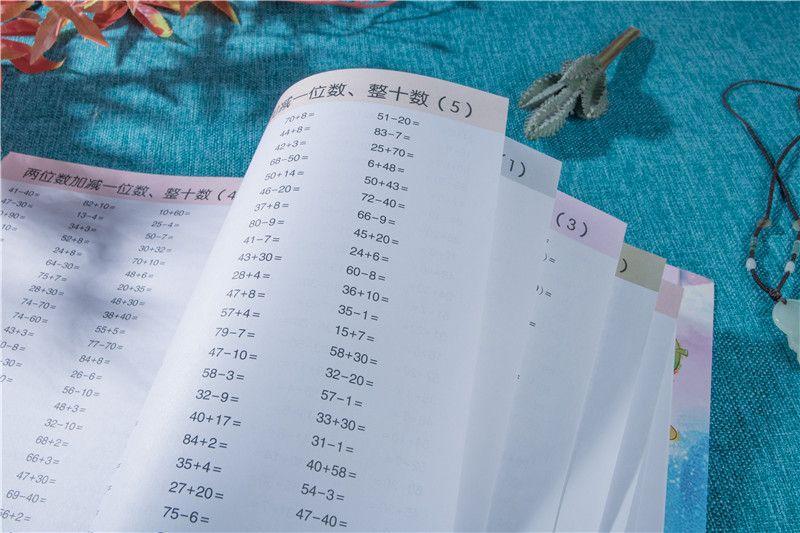 两位数加减一位数、整十数（4
41-40= 82+10= 10+60=
47-30= 13-4= 25-4=
34+3= 50-7=
52+8= 30+32=
24+8= 70+10=
64-30= 48+6=
75+7= 20+35=
28+30= 48+30=
74-70= 38+40=
74-60= 55+5=
43+3= 77-70=
84+8=
26-6=
56-10=
48+3=
32-10=
68+2=
66+3=
47+30=
69-40=
56+2=
减一位数、整十数（5）
70+8= 51-20=
44+8= 83-7=
42+3= 25+70=
68-50= 6+48=
50+14= 50+43=
46-20= 72-40=
37+8= 66-9=
80-9= 45+20=
41-7= 24+6=
43+30= 60-8=
28+4= 36+10=
47+8= 35-1=
57+4= 15+7=
79-7= 58+30=
47-10= 32-20=
58-3= 57-1=
32-9= 33+30=
40+17= 31-1=
84+2= 40+58=
35+4= 54-3=
27+20= 47-40=
75-6=
（1）
（3）
）